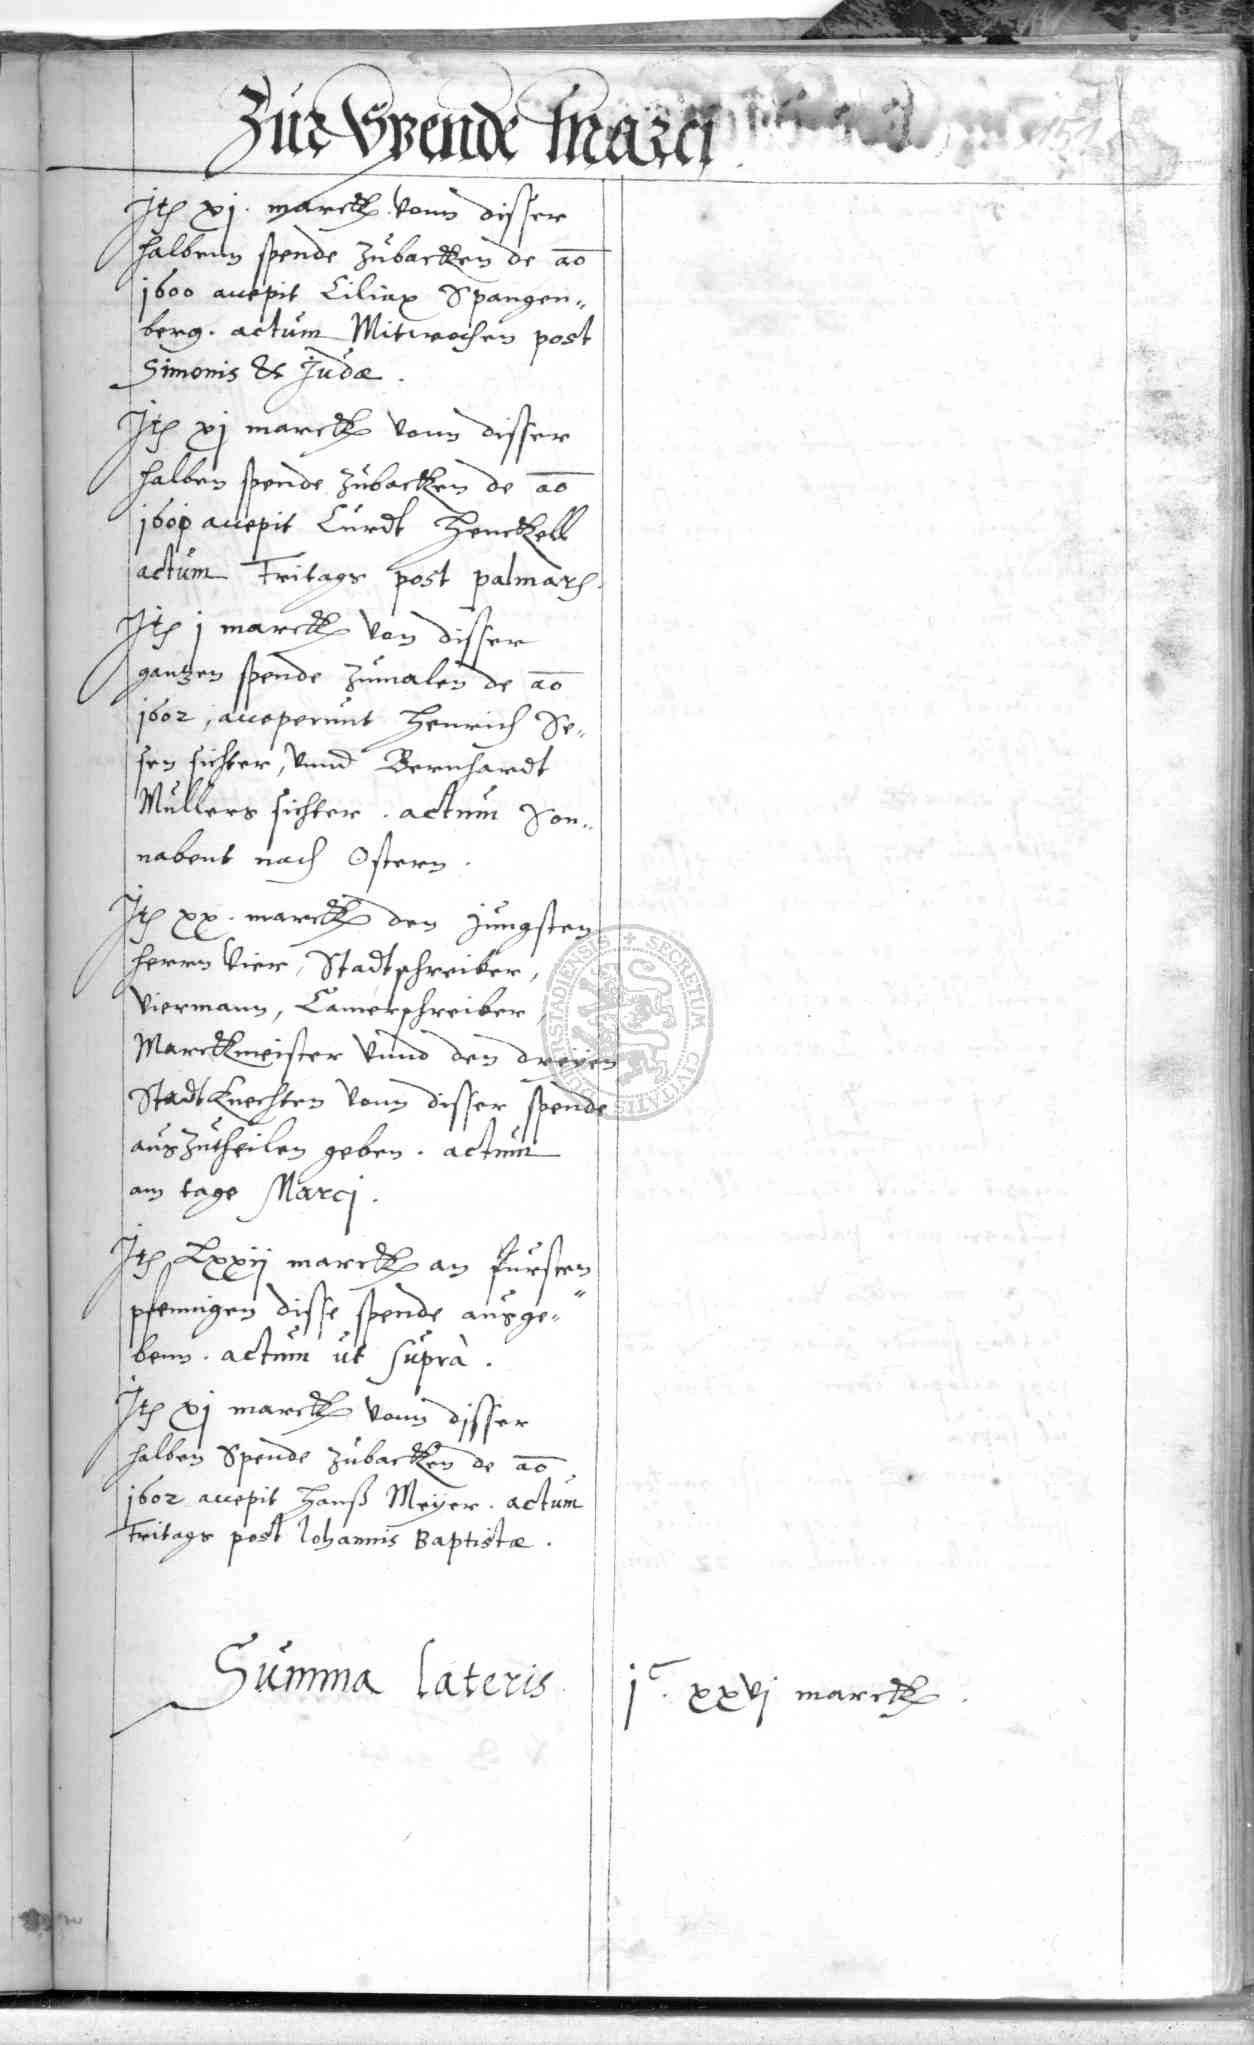 Zur Spende Marci 151
Jtẽ xj. marck vonn disser
halbenn spende zubacken de ao
1600 accepit Ciliax Spangen„
berg. actum Mitwochen post
Simonis & Judæ.
Jtẽ xj marck vonn disser
halben spende zubacken de ao
1601 accepit Curdt Henckell
actum Fritags post palmarũ.
Jtẽ j marck von disser
gantzen spende zumalen de ao
1602, acceperunt Henrich Se„
sen sichter, vnnd Bernhardt
Mullers sichter. actum Son„
nabent nach Ostern.
Jtẽ xx. marck den Jungsten
herrn vier, Stadtschreiber,
viermann, Camerschreiber,
Marckmeister vnnd den dreyen
Stadtknechten vonn disser spende
auszutheilen geben. actum
am tage Marcj.
Jtẽ Lxxij marck an fursten
pfennigen disse spende ausge„
benn. actum ut suprà.
Jtẽ xj marck vonn disser
halben Spende zubacken de ao
1602 accepit Hanß Meyer. actum
Fritags post Johannis Baptistæ.
Summa lateris jc. xxvj marck.
SECRETUM CIVITATIS DUDERSTADIENSIS